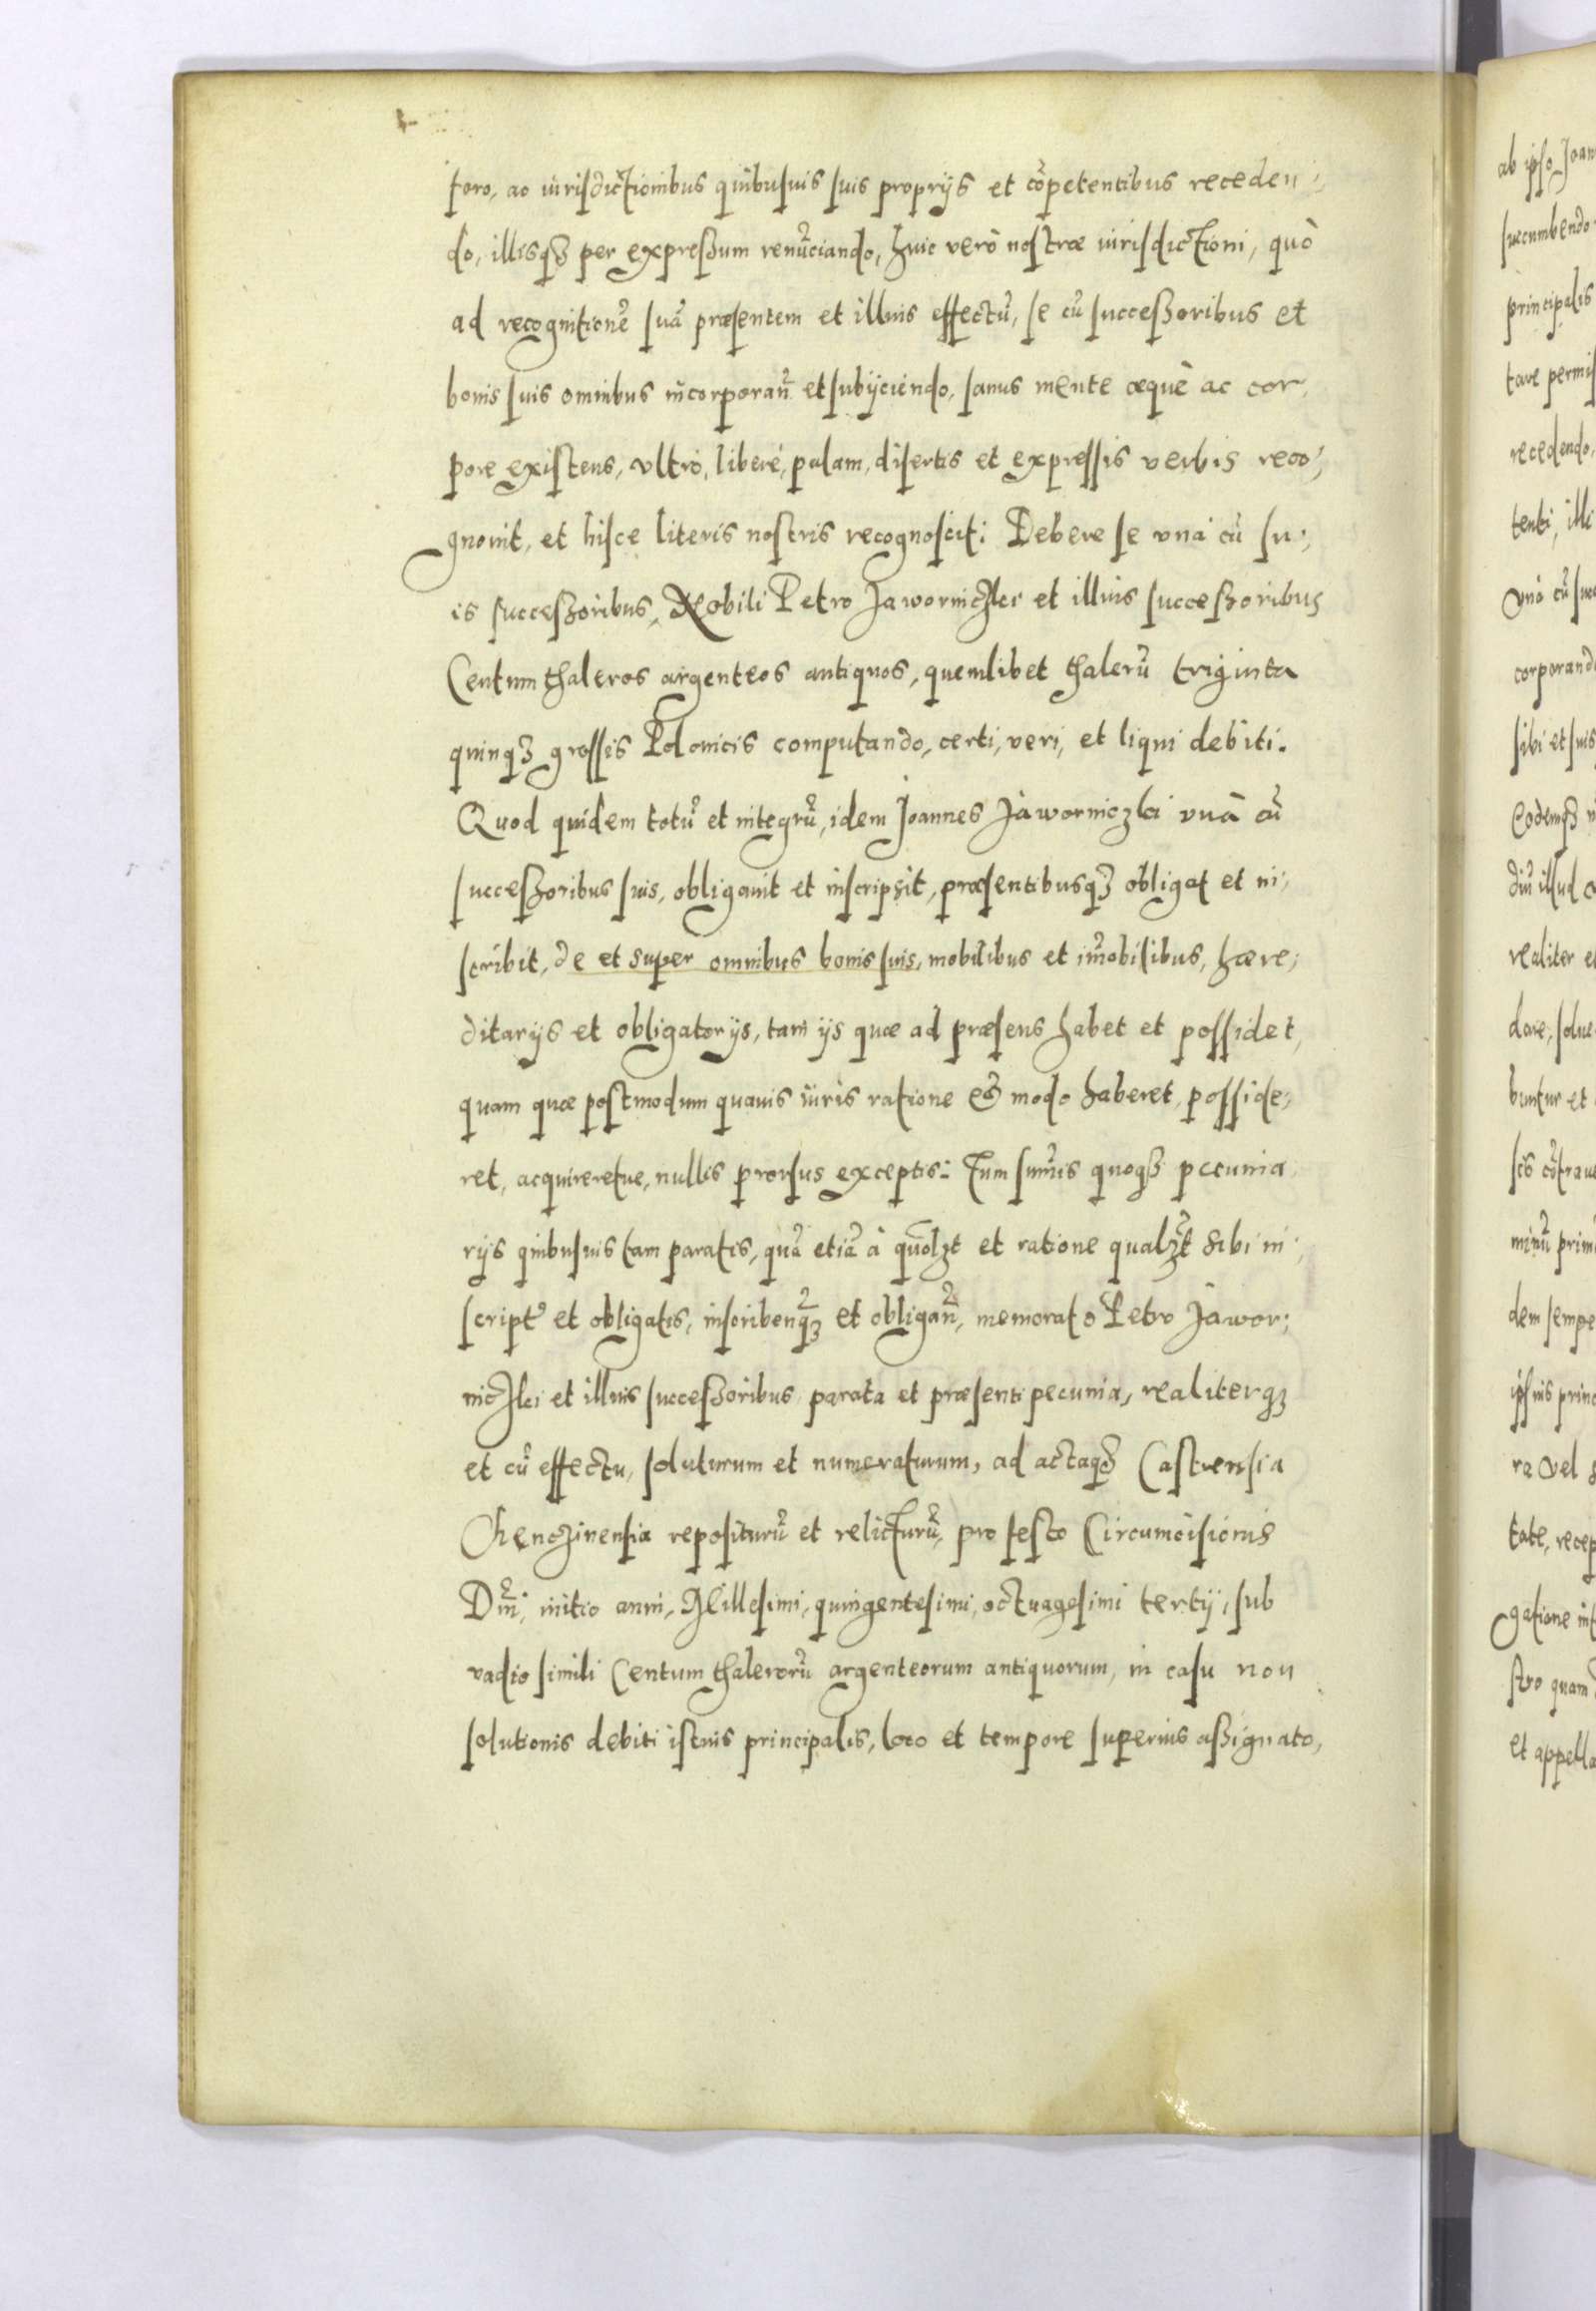 foro, ac iurisdictionibus quibusuis suis proprijs et cõpetentibus receden
do, illisqȝ per expreßum renũciando, huic verò nostræ iurisdictioni, quò
ad recognitionẽ suã præsentem et illius effectũ, se cũ succeßoribus et
bonis suis omnibus incorporañ et subijciendo, sanus mente æquè ac cor
pore existens, vltrò, liberè, palam, disertis et expressis verbis reco;
gnouit, et hisce literis nostris recognoscit: Debere se vnà cũ su;
is succeßoribus, Nobili Petro Jaworniczkei et illius succeßoribus
Centum thaleros argenteos antiquos, quemlibet thalerũ triginta
quinqȝ grossis Polonicis computando, certi, veri, et liqui debiti.
Quod quidem totũ et integrũ, idem Joannes Jaworniczki vnà cũ
succeßoribus suis, obligauit et inscripsit, præsentibusqȝ obligat et in;
scribit, de et super omnibus bonis suis, mobilibus et im̃obilibus, hære;
ditarijs et obligatorijs, tam ijs quæ ad præsens habet et possidet,
quam quæ postmodum quauis iuris ratione & modo haberet, posside;
ret, acquireretue, nullis prorsus exceptis: Tum sum̃is quoqȝ pecunia
rijs quibusuis tam paratis, quã etiã à quolȝt et ratione qualȝt sibi in;
script' et obligatis, inscribenqȝ et obligañ, memorato Petro Jawor;
niczkei et illius succeßoribus parata et præsenti pecunia, realiterqȝ
et cũ effectu, soluturum et numeraturum, ad actaqȝ Castrensia
Chenczinensia repositurũ et relicturũ, pro festo Circumcisionis
Dñi, initio anni, Millesimi, quingentesimi, octuagesimi tertij, sub
vadio simili Centum thalerorũ argenteorum antiquorum, in casu non
solutionis debiti istius principalis, loco et tempore superius aßignato,
ab ipso Joan
succumbendo
principalis
tare permis
recedendo,
tenti, illi
vnà cũ suc
corporand
sibi et suis
Eodemqȝ
diũ illud
realiter e
dare, solue
buntur et
scs cõtraue
minũ prim
dem sempe
ipsius princ
re vel
tate, recep
gatione int
stro quam
et appella